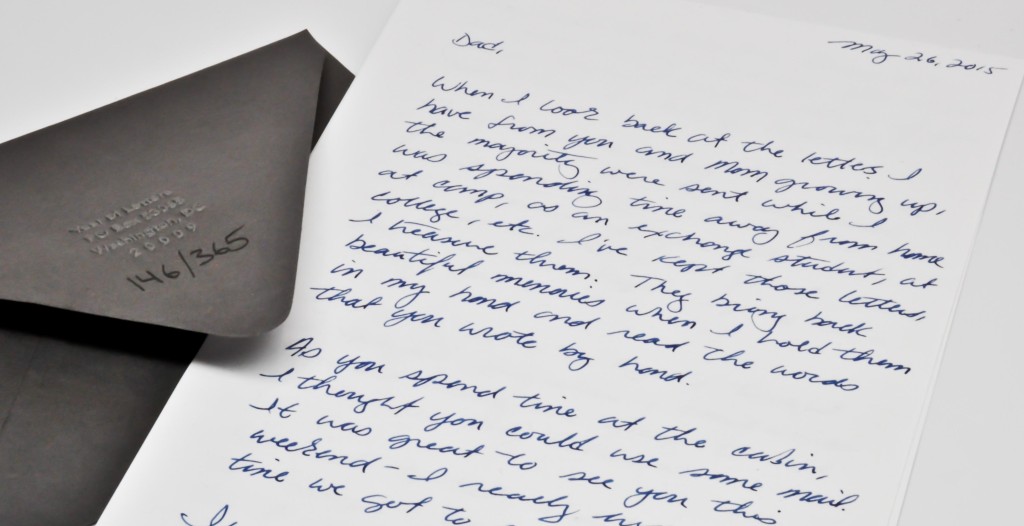 May 26, 2015
Dad,
When I look back at the letters I
have from you and Mom growing up,
the majority were sent while I
was spending time away from home
at camp, as an exchange student, at
college, etc. I've kept those letters,
I treasure them. They bring back
beautiful memories when I hold them
in my hand and read the words
that you wrote by hand.
As you spend time at the cabin,
I thought you could use some mail.
It was great to see you this
weekend - I really
time we got to
Washington, DC
146/365